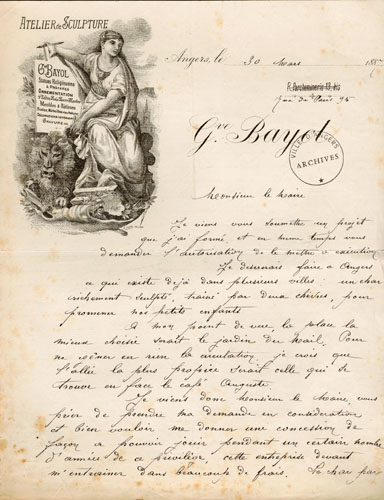 ATELIER de SCULPTURE
Gve BAYOL
Statues Religieuses
& PROFANES
ORNEMENTATION
Angers, le 30 Mars 188
rue de Paris 95
Gve Bayol
VILLE D'ANGERS
ARCHIVES
Monsieur le Maire
Je viens vous soumettre un projet
que j'ai formé, et en même temps vous
demander l'autorisation de le mettre à exécution
Je désirerais faire à Angers
ce qui existe déjà dans plusieurs villes un char
richement sculpté, trainé par deux chèvres, pour
promener nos petits enfants
A mon point de vue, la place la
mieux choisie serait le jardin du Mail. Pour
ne gêner en rien la circulation je crois que
l'allée la plus propice serait celle qui se
trouve en face le café Auguste
Je viens donc Monsieur le Maire, vous
prier de prendre ma demande en considération
et bien vouloir me donner une concession de
façon à pouvoir jouir pendant un certain nombre
d'années de ce privilège, cette entreprise devant
m'entrainer dans beaucoup de frais. Le char par